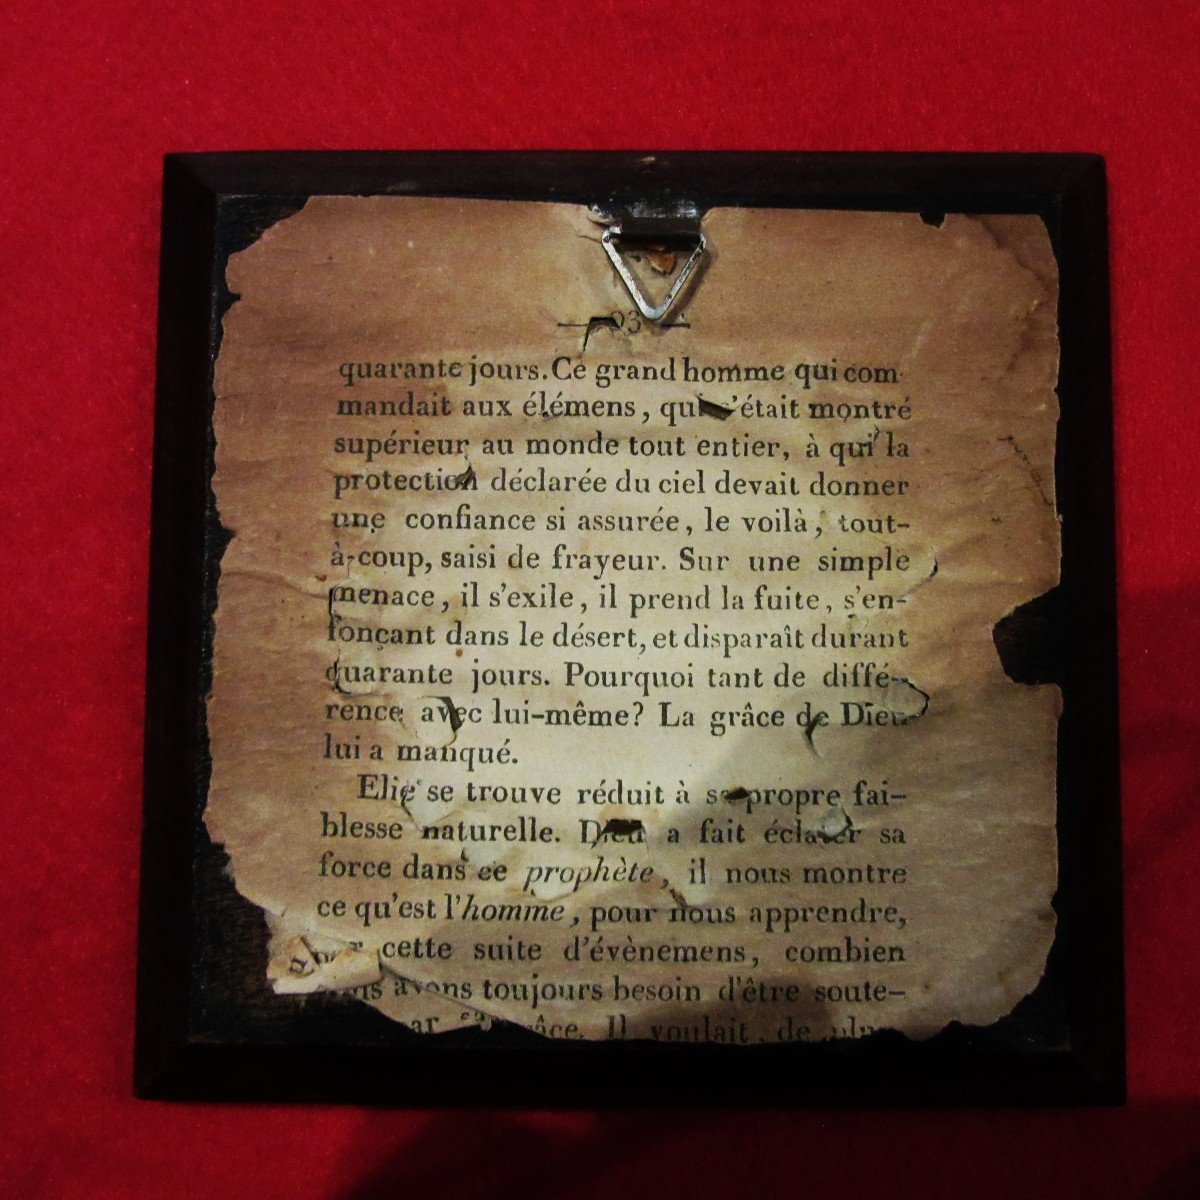 93
quarante jours. Ce grand homme qui com
mandait aux élémens, qui s'était montré
supérieur au monde tout entier, à qui la
protection déclarée du ciel devait donner
une confiance si assurée, le voilà, tout-
à-coup, saisi de frayeur. Sur une simple
menace, il s'exile, il prend la fuite, s'en-
fonçant dans le désert, et disparaît durant
quarante jours. Pourquoi tant de diffé-
rence avec lui-même? La grâce de Dieu
lui a manqué.
Elie se trouve réduit à sa propre fai-
blesse naturelle. Dieu a fait éclater sa
force dans ce prophète, il nous montre
ce qu'est l'homme, pour nous apprendre,
cette suite d'évènemens, combien
avons toujours besoin d'être soute-
grâce. Il voulait de